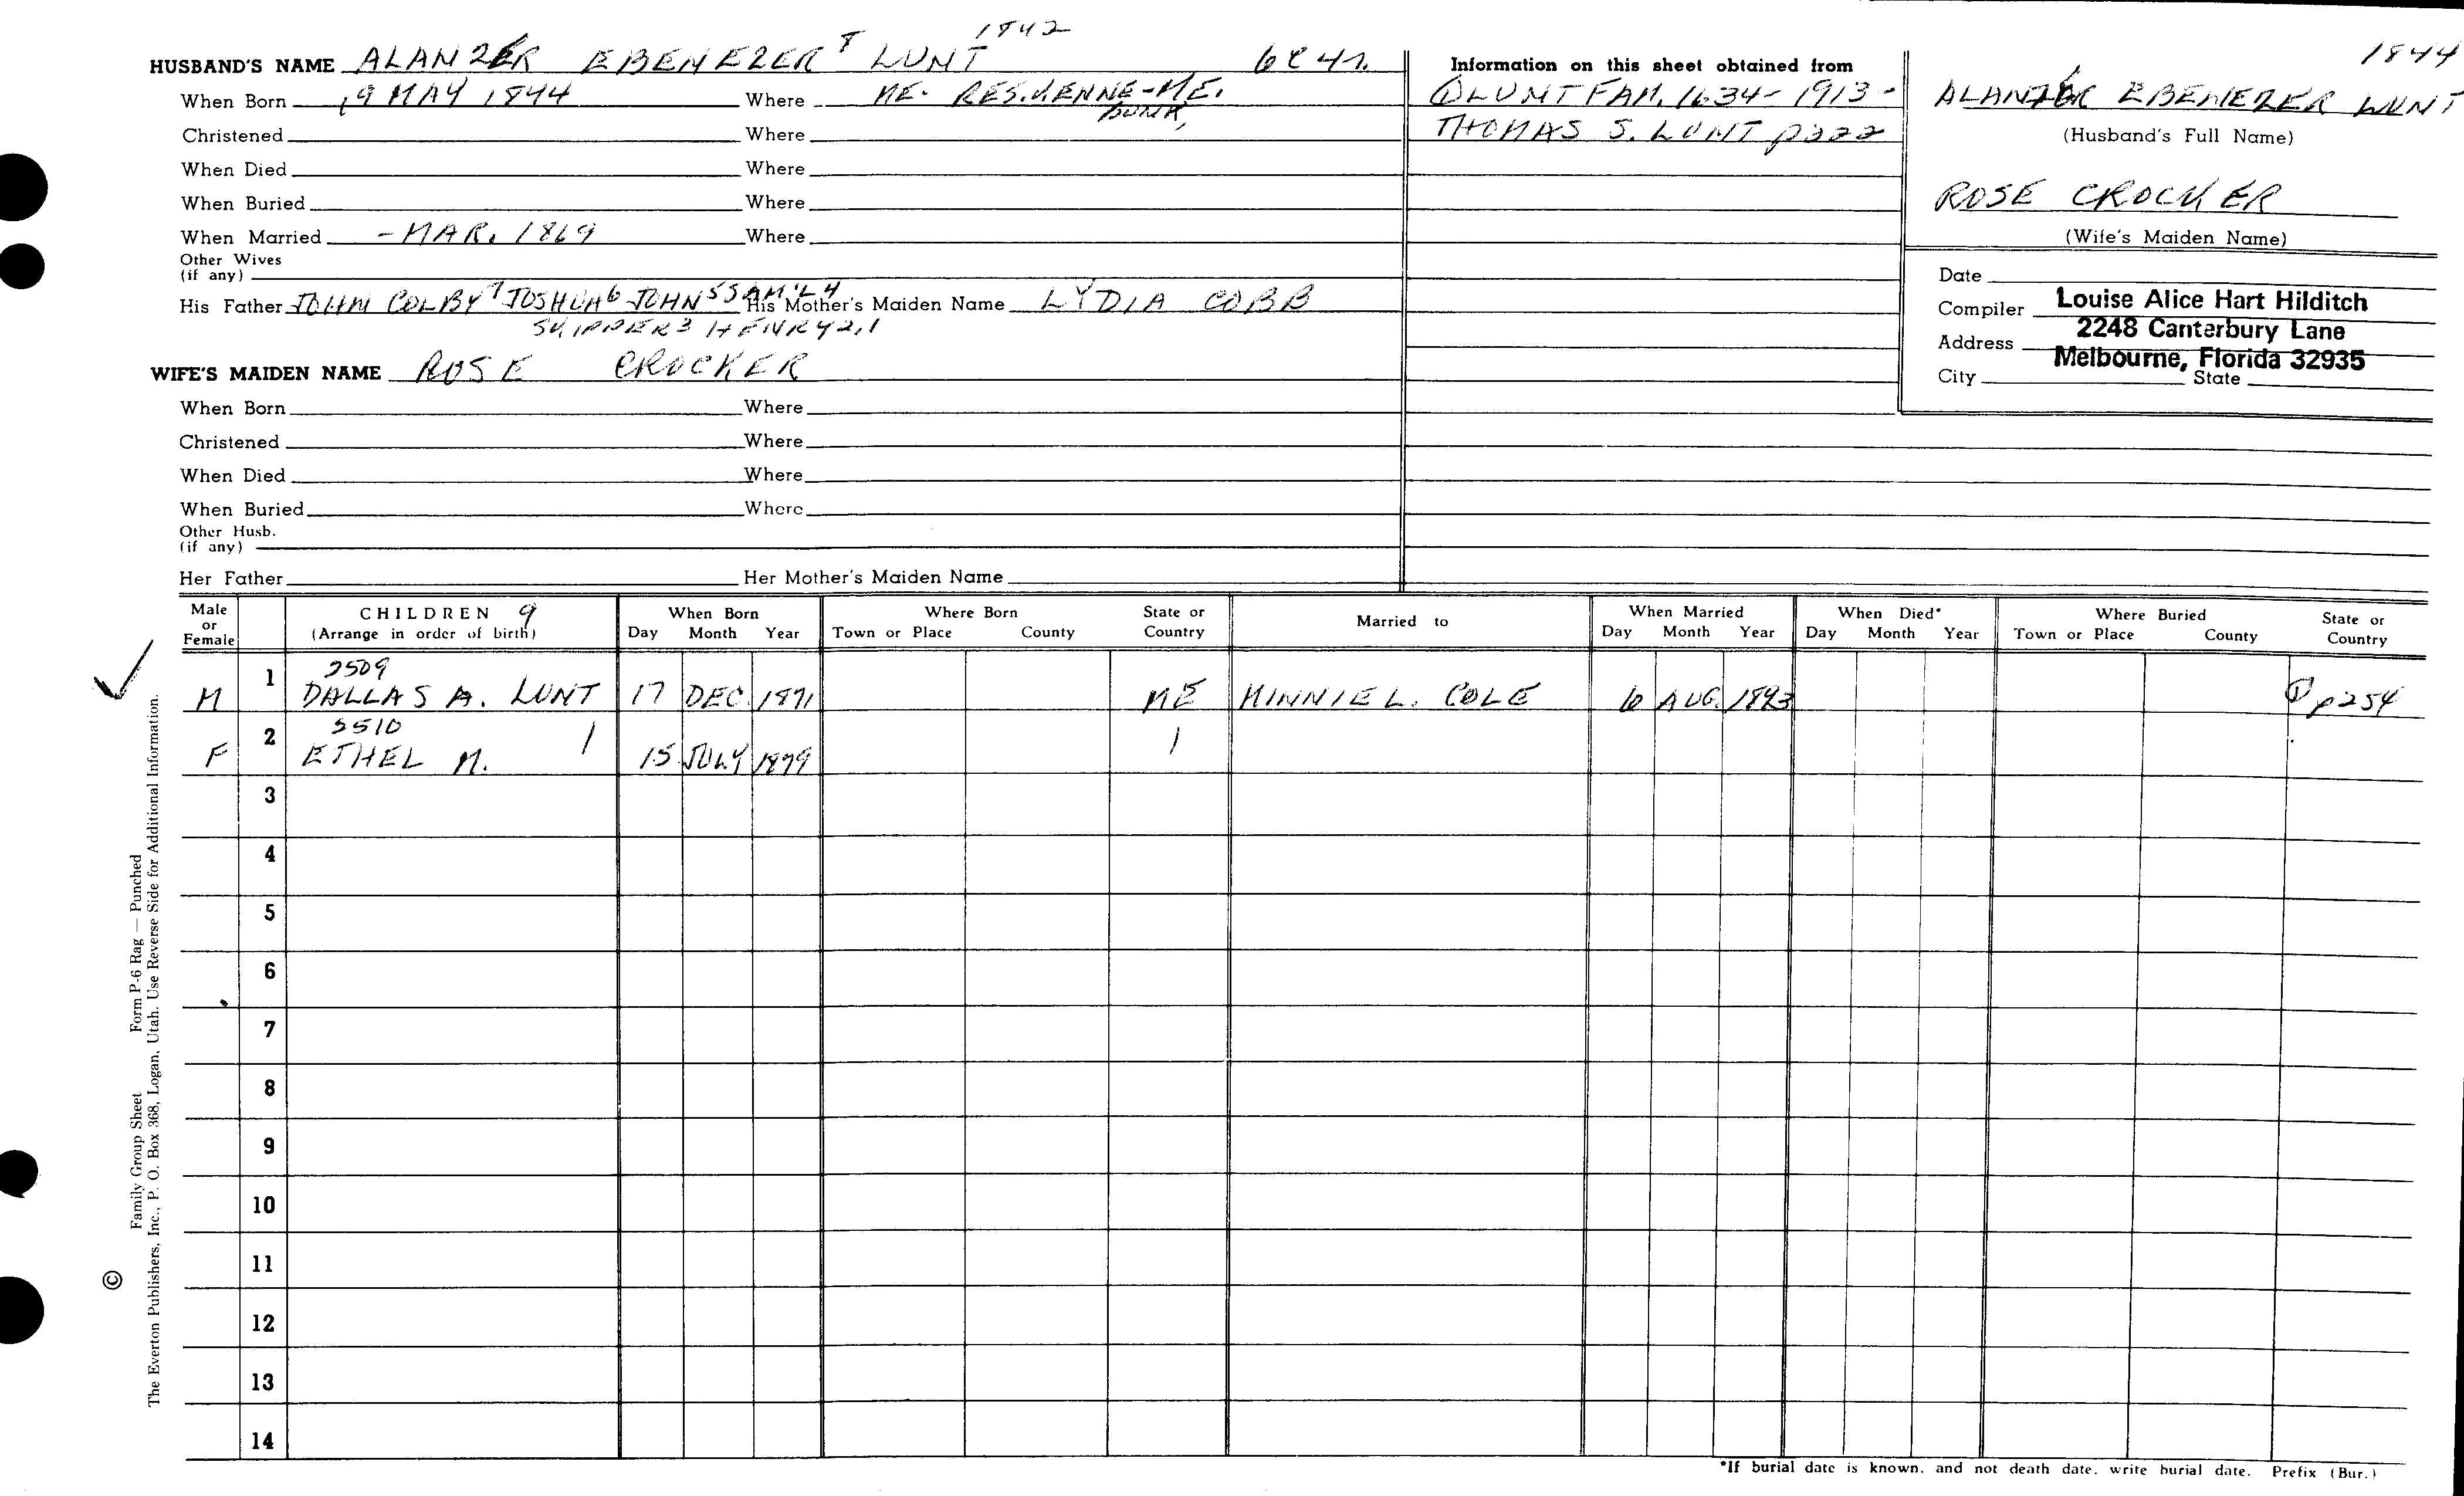 1842
1844
HUSBAND'S NAME ALANZER EBENEZER 8 LUNT
Information on this sheet obtained from
When Born 19 MAY 1844 Where ME. RES. KENNE-ME.
BUNK,
① LUNT FAM. 1634-1913-
ALANZER EBENEZER LUNT
Christened Where
THOMAS S. LUNT p222
(Husband's Full Name)
When Died Where
When Buried Where
ROSE CROCKER
When Married -MAR. 1869 Where
(Wife's Maiden Name)
Other Wives
(if any)
Date
His Father JOHN COLBY 7 JOSHUA 6 JOHN 5 SAM'L 4 His Mother's Maiden Name LYDIA COBB
SKIPPER 3 HENRY 2,1
Compiler Louise Alice Hart Hilditch
2248 Canterbury Lane
Address
Melbourne, Florida 32935
City State
WIFE'S MAIDEN NAME ROSE CROCKER
When Born Where
Christened Where
When Died Where
When Buried Where
Other Husb.
(if any)
Her Father Her Mother's Maiden Name
Male or Female CHILDREN 9 (Arrange in order of birth) When Born Day Month Year Where Born Town or Place County State or Country Married to When Married Day Month Year When Died* Day Month Year Where Buried Town or Place County State or Country
2509
M 1 DALLAS A. LUNT 17 DEC. 1871 ME MINNIE L. COLE 6 AUG. 1893 ① p254
2510
F 2 ETHEL M. 15 JULY 1879
3
4
5
6
7
8
9
10
11
12
13
14
*If burial date is known, and not death date, write burial date. Prefix (Bur.)
© Family Group Sheet Form P-6 Rag — Punched
The Everton Publishers, Inc., P. O. Box 368, Logan, Utah. Use Reverse Side for Additional Information.